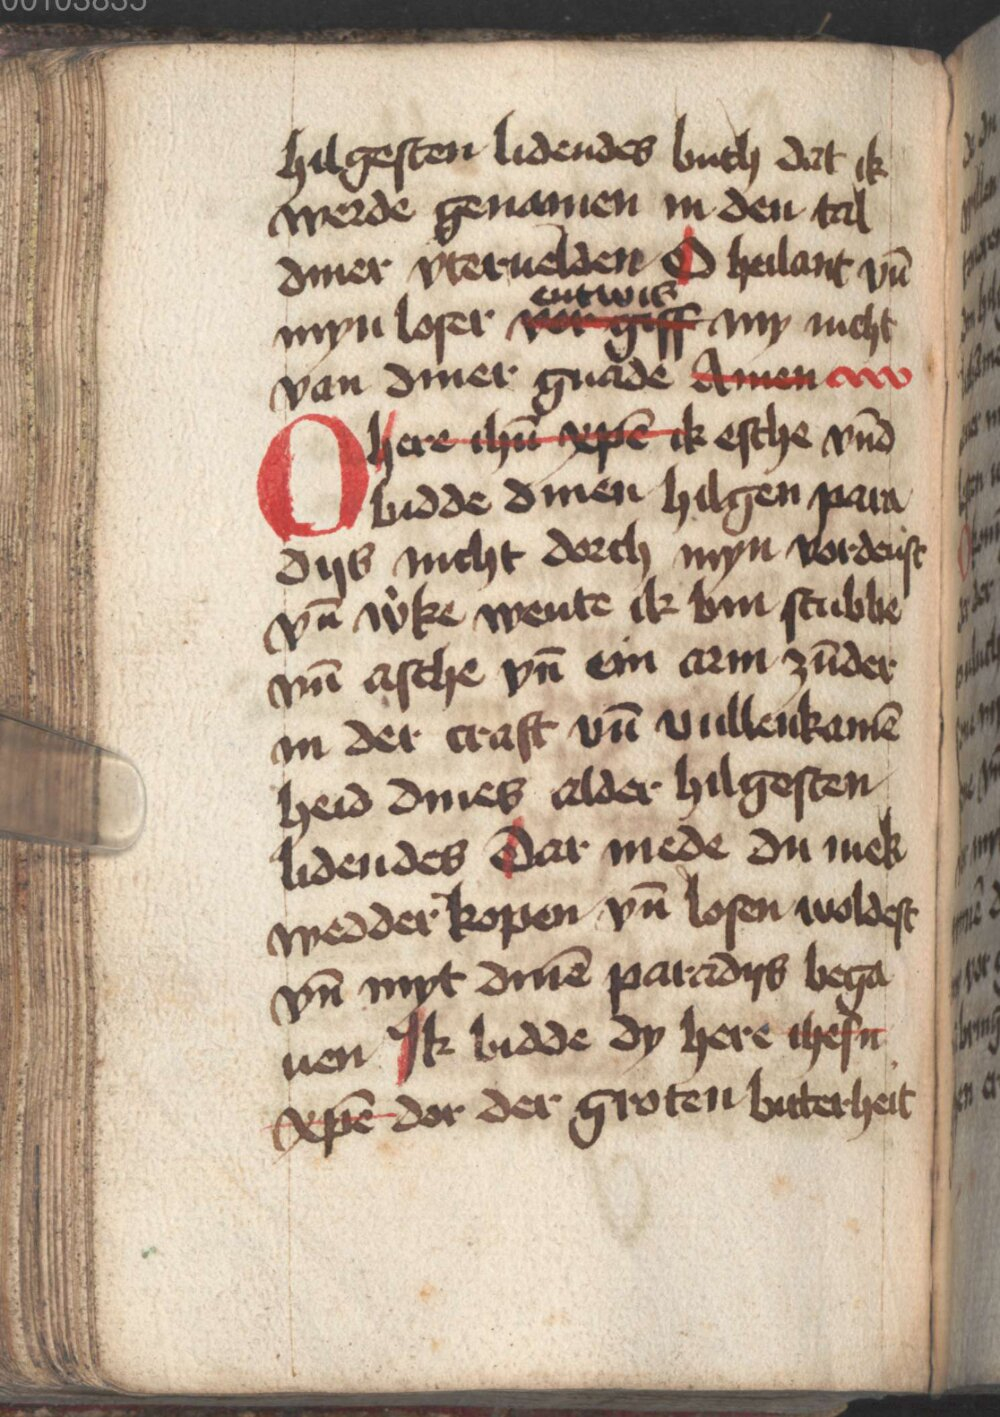 00103835
hilgesten lidendes buth dat ik
werde genamen in den tal
diner vteruelden O heilant vn̄
myn loser vor giff entwis my nicht
van diner gnade Amen
O here ihū xp̄e ik esche vn̄d
bidde dinen hilgen para
dijs nicht dorch myn vordenst
vn̄ ẘke wente ik bin stubbe
vn̄ asche vn̄ ein arm zūder
in der craft vn̄ vullenkamē
heid dines alder hilgesten
lidendes Dar mede du mek
wedder kopen vn̄ losen woldest
vn̄ myt dinē paradijs bega
uen Ik bidde dy here ihesu
xp̄e dor der groten bitterheit